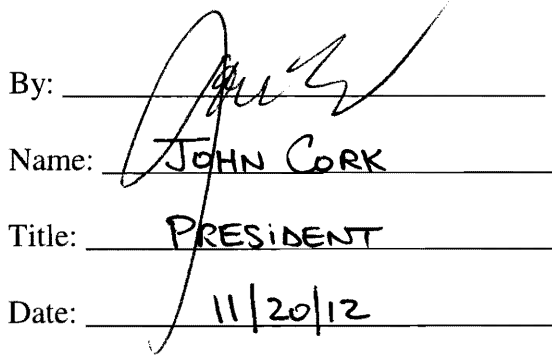 By:
Name: JOHN CORK
Title: PRESIDENT
Date: 11/20/12